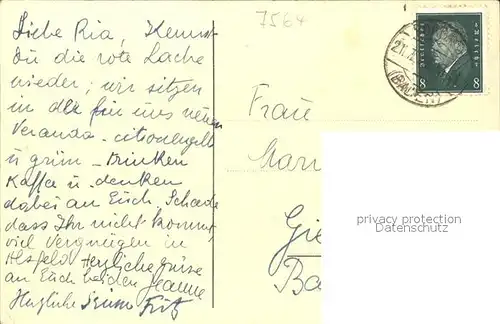 Liebe Ria, Kennst
Du die rote Lache
wieder; wir sitzen
in der für uns neuen
Veranda - citronengelb
u grün - Trinken
Kaffee u. denken
dabei an Euch. Schade
dass Ihr nicht kommt,
viel Vergnügen in
Alsfeld Herzliche Grüsse
an Euch beiden Jeanne
Herzliche Fritz
7564
Frau
Gie
Ba
DEUTSCHES REICH
8 8
(BADEN)
privacy protection
Datenschutz